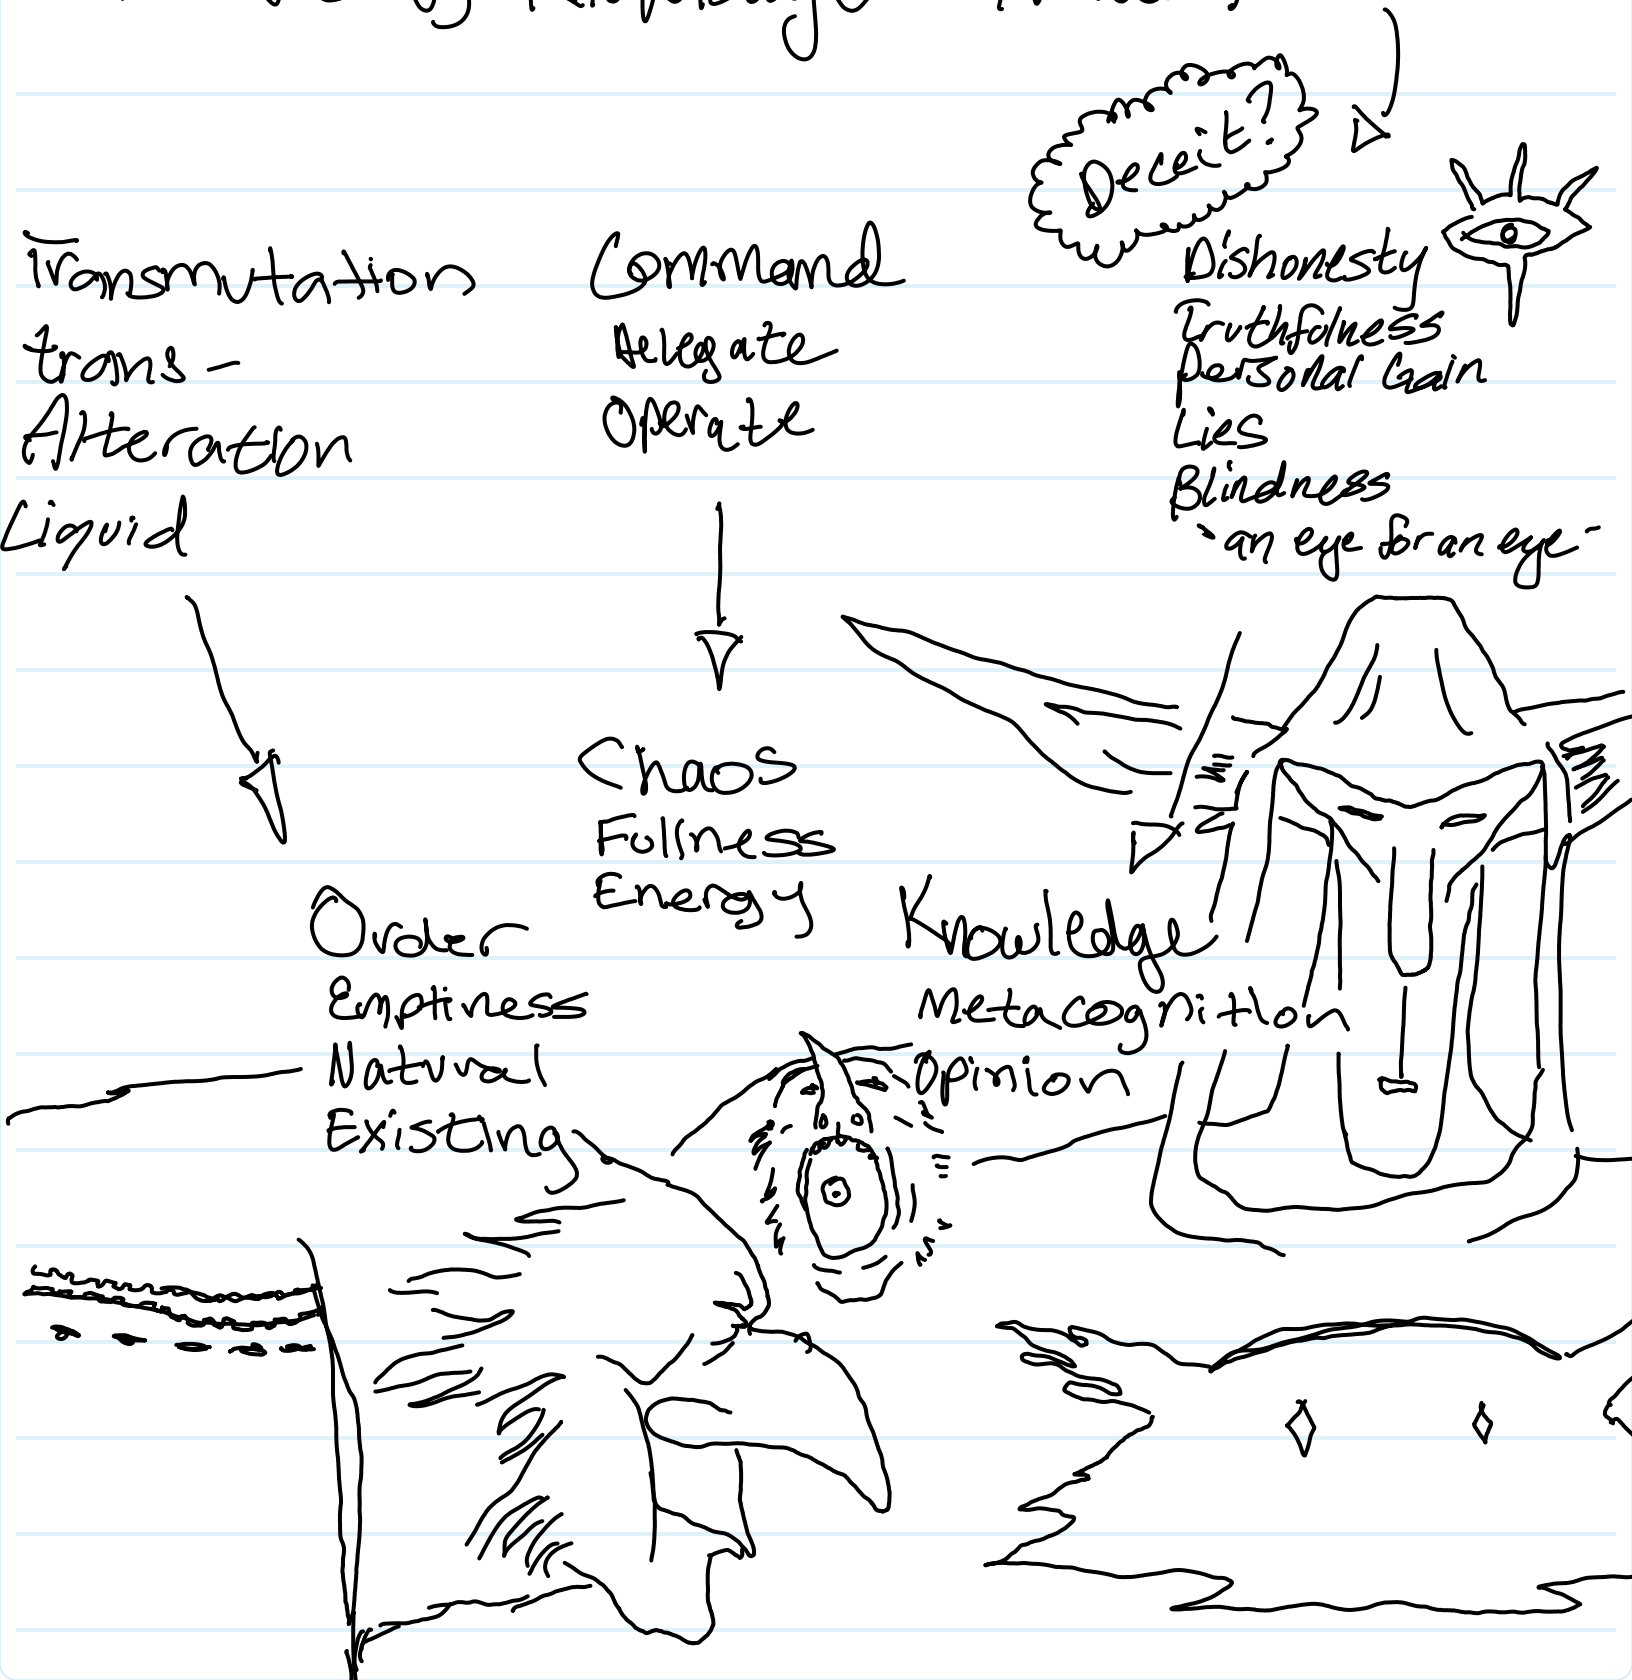 Deceit?
Transmutation
trans-
Alteration
Liquid
Command
Delegate
Operate
Dishonesty
Truthfulness
Personal Gain
Lies
Blindness
"an eye for an eye"
Chaos
Fullness
Energy
Order
Emptiness
Natural
Existing
Knowledge
Metacognition
Opinion